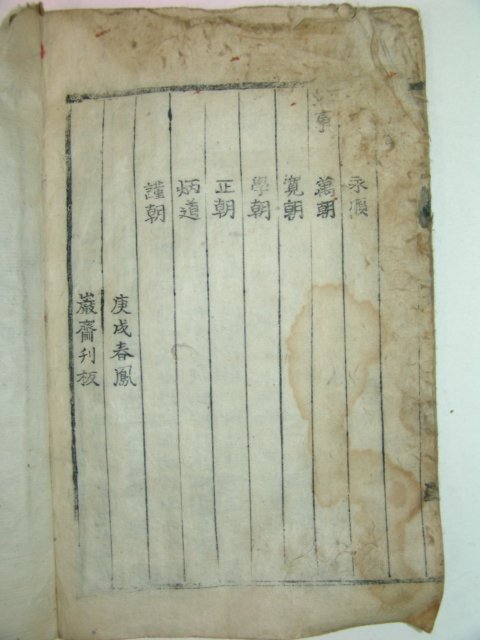 事
永煥
萬朝
寬朝
學朝
正朝
炳道
謹朝
庚戌春鳳
巖齋刊板